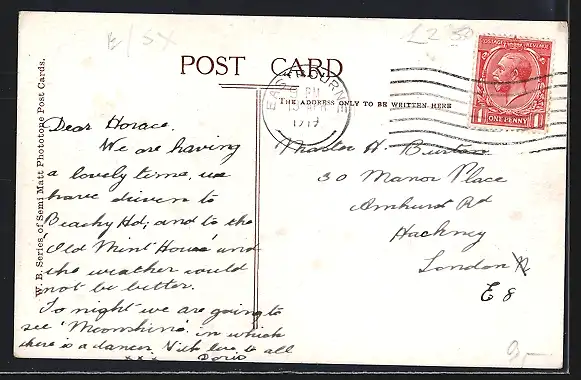 E/SX
POST CARD
THE ADDRESS ONLY TO BE WRITTEN HERE
EASTBOURNE
POSTAGE REVENUE
ONE PENNY
W. B. Series, of Semi Matt Phototone Post Cards.
Dear Horace,
We are having
a lovely time, we
have driven to
Beachy Hd, and to the
'Old Mint House' and
the weather could
not be better.
To night we are going to
see 'Moonshine' in which
there is a dancer. With love to all
xxx Doris
Master H. Burton
30 Manor Place
Amhurst Rd
Hackney
London N
E 8